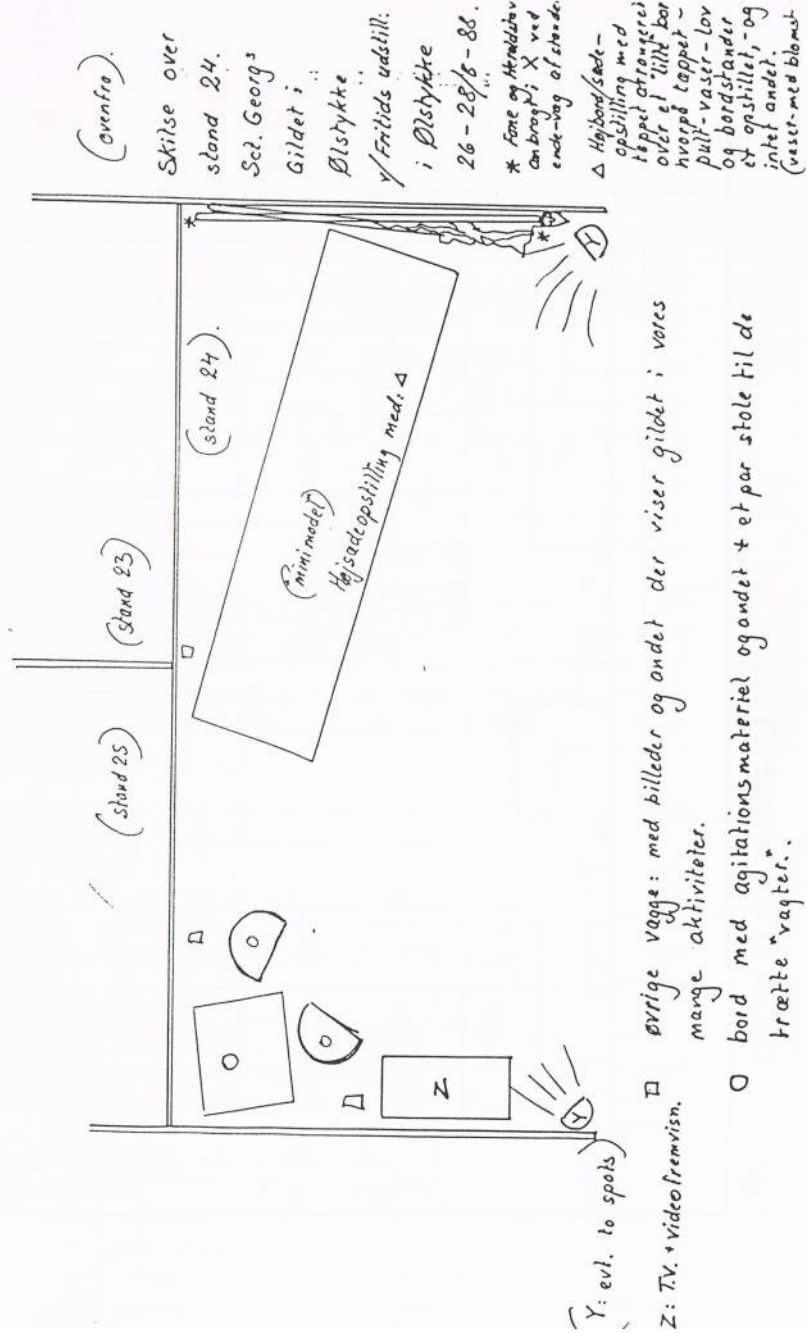 (ovenfra).
Skitse over
stand 24.
Sct. Georgs
Gildet i
Ølstykke
v/Fritids udstill:
i Ølstykke
26-28/8-88.
* Fane og Heraldstav
anbragt i X ved
ende-væg af stande.
△ Højbord/sæde-
opstilling med
tæppet arrangeret
over et "lille" bor
hvorpå tæppet-
pult-vaser-lov
og bordstander
er opstillet,-og
intet andet.
(vaser-med blomst
(stand 25)
(stand 23)
(stand 24).
*
(minimodel)
Højsædeopstilling med: △
*
Y
O
O
O
Z
Y
(Y: evt. to spots)
Z: T.V. + videofremvisn.
□ øvrige vægge: med billeder og andet der viser gildet i vores
mange aktiviteter.
O bord med agitationsmateriel og andet + et par stole til de
trætte "vagter".